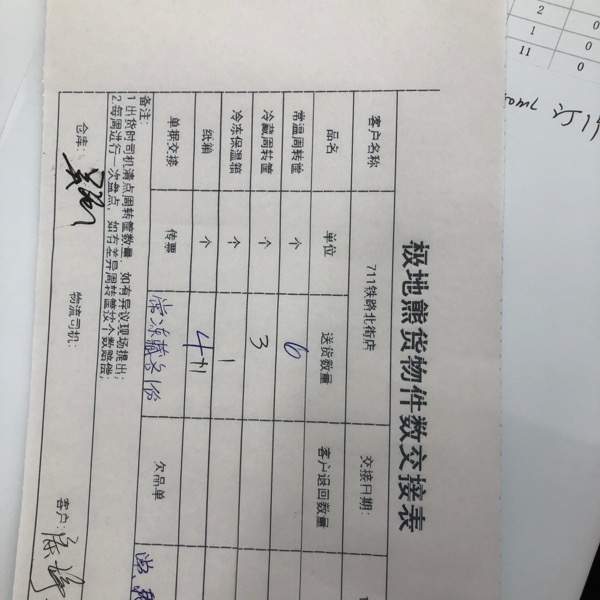 极地熊货物件数交接表
客户名称 711铁路北街店 交接日期:
品名 单位 送货数量 客户退回数量
常温周转筐 个 6
冷藏周转筐 个 3
冷冻保温箱 个 1
纸箱 个 4+1
单据交接 传票 常冻藏各1份 欠品单
备注:
1.出货时司机清点周转筐数量，如有异议现场提出;
2.每周进行一次盘点，如有差异周转筐按个数赔偿;
仓库: 物流司机: 客户:
2 0
1 0
11 0